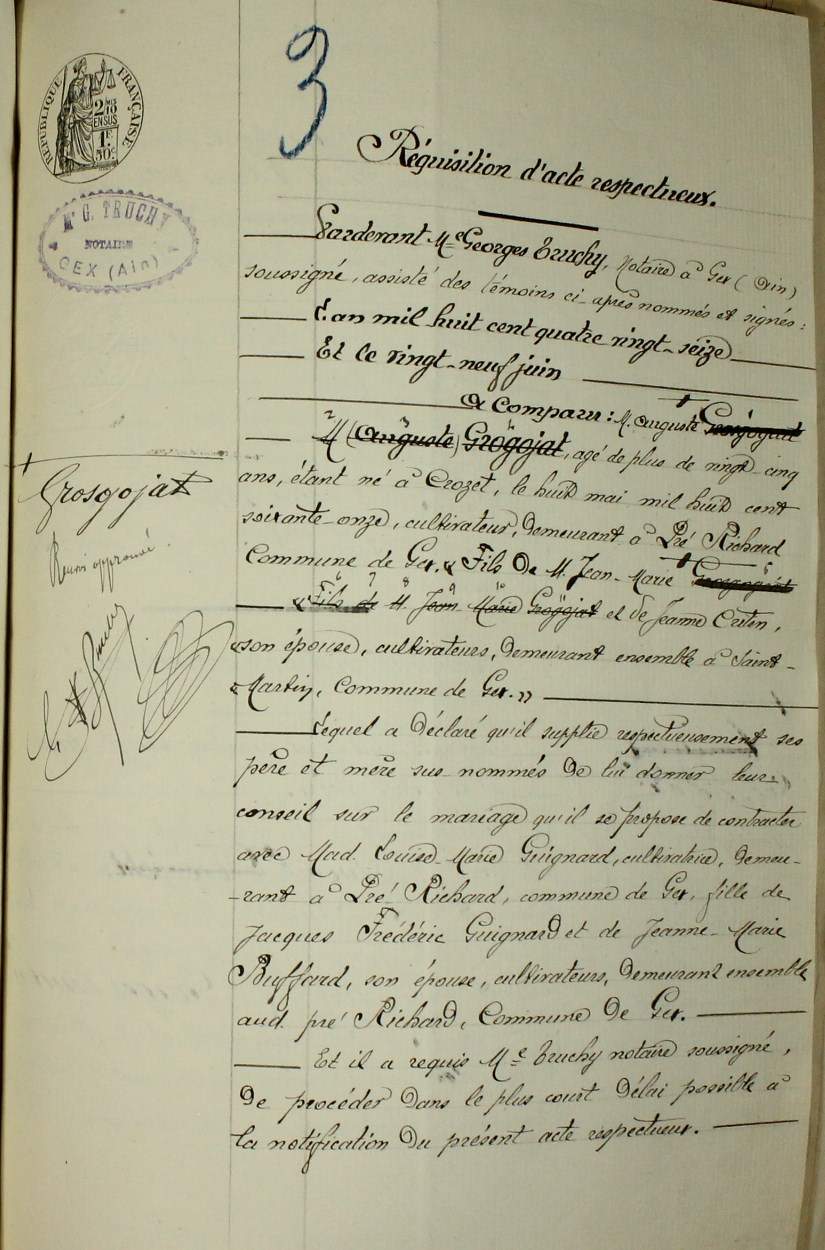 3
RÉPUBLIQUE FRANÇAISE
2/10
EN SUS
1F
50c
Mᵉ G. TRUCHY
NOTAIRE
GEX (Ain)
Réquisition d'acte respectueux.
Pardevant Mᵉ Georges Truchy, Notaire à Gex (Ain)
soussigné, assisté des témoins ci-après nommés et signés:
L'an mil huit cent quatre vingt-seize
Et le vingt-neuf juin
A Comparu: M. Auguste
M (Auguste) Grogojat, agé de plus de vingt-cinq
ans, étant né à Crozet, le huit mai mil huit cent
soixante-onze, cultivateur, demeurant à Pré Richard
Commune de Gex, Fils de M. Jean-Marie
Fils de M. Jean Marie Grogojat et de Jeanne
son épouse, cultivateurs, demeurant ensemble à Saint-
Martin, Commune de Gex.
+
Grosgojat
Renvoi approuvé.
Lequel a déclaré qu'il supplie respectueusement ses
père et mère sus-nommés de lui donner leur
conseil sur le mariage qu'il se propose de contracter
avec Mad. Louise-Marie Guignard, cultivatrice, demeu-
-rant à Pré Richard, commune de Gex, fille de
Jacques Frédéric Guignard et de Jeanne-Marie
Buffard, son épouse, cultivateurs, demeurant ensemble
aud. pré Richard, Commune de Gex.
Et il a requis Mᵉ Truchy notaire soussigné,
de procéder dans le plus court délai possible à
la notification du présent acte respectueux.